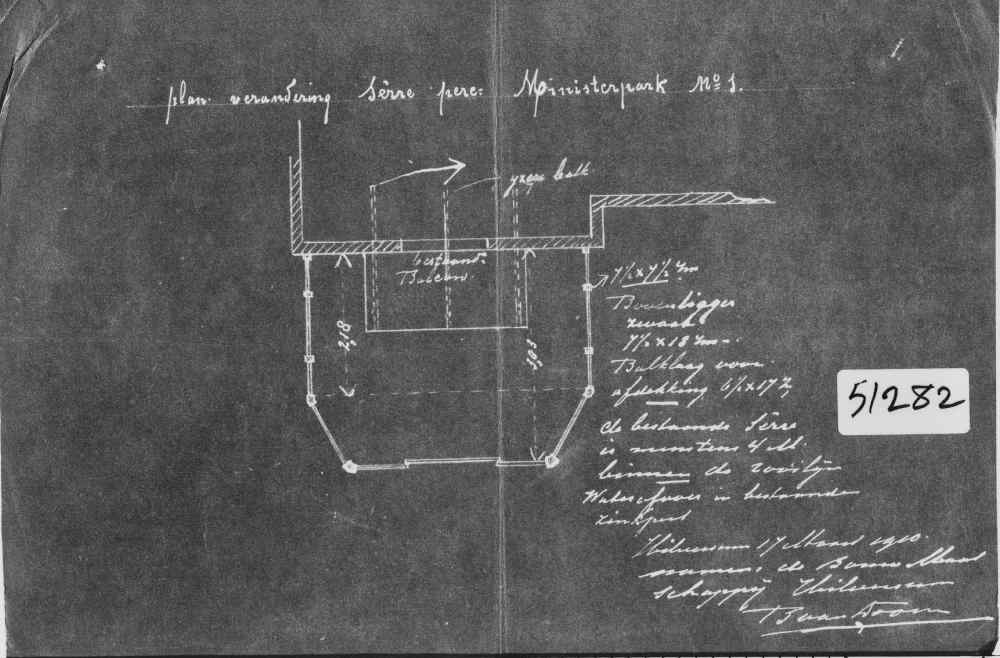 1.
plan. verandering Sêrre perc: Ministerpark No 1.
yzeren balk
bestaand:
Balcon.
2,18
3,03
7½ x 7½ c/m
Bovenligger
zwaar
7½ x 18 c/m.
Balklaag voor
afdekking 6½ x 17
de bestaande Sêrre
is minstens 4 M.
binnen de rooilijn
Waterafvoer in bestaande
zinkput
Hilversum 17 Maart 1910.
namens de Bouw Maat
schappij Hilversum
51282